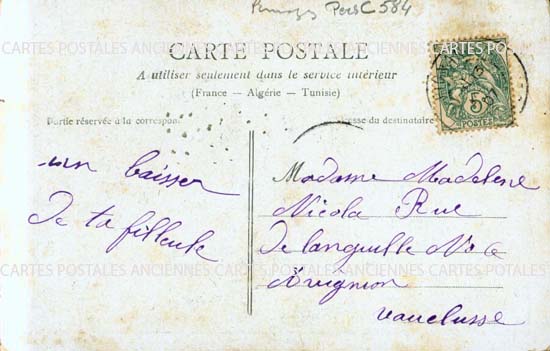 Pers C 584
CARTES POSTALES ANCIENNES CARTES POSTALES ANCIENNES CARTES POSTALES
CARTE POSTALE
A utiliser seulement dans le service intérieur
(France — Algérie — Tunisie)
Partie réservée à la correspon
esse du destinataire
5
POSTES
un baiser
De ta filleule
Madame Madelene
Nicola Rue
De languille No 6
Avignion
vauclusse
CARTES POSTALES ANCIENNES CARTES POSTALES ANCIENNES CARTES POTALES